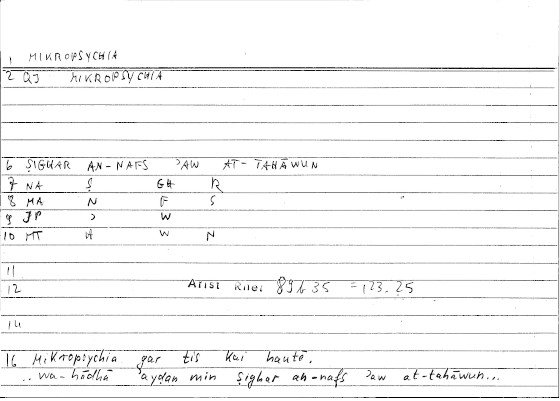 1 MIKROPSYCHIA
2 QJ MIKROPSYCHIA
6 ṢIGHAR AN-NAFS ʾAW AT-TAHĀWUN
7 NA Ṣ GH R
8 MA N F S
9 JP ʾ W
10 MT H W N
11
12 Arist Rhet 89b35 = 123.25
14
16 Mikropsychia gar tis kai hautē.
..wa-hādhā ʾayḍan min ṣighar an-nafs ʾaw at-tahāwun...